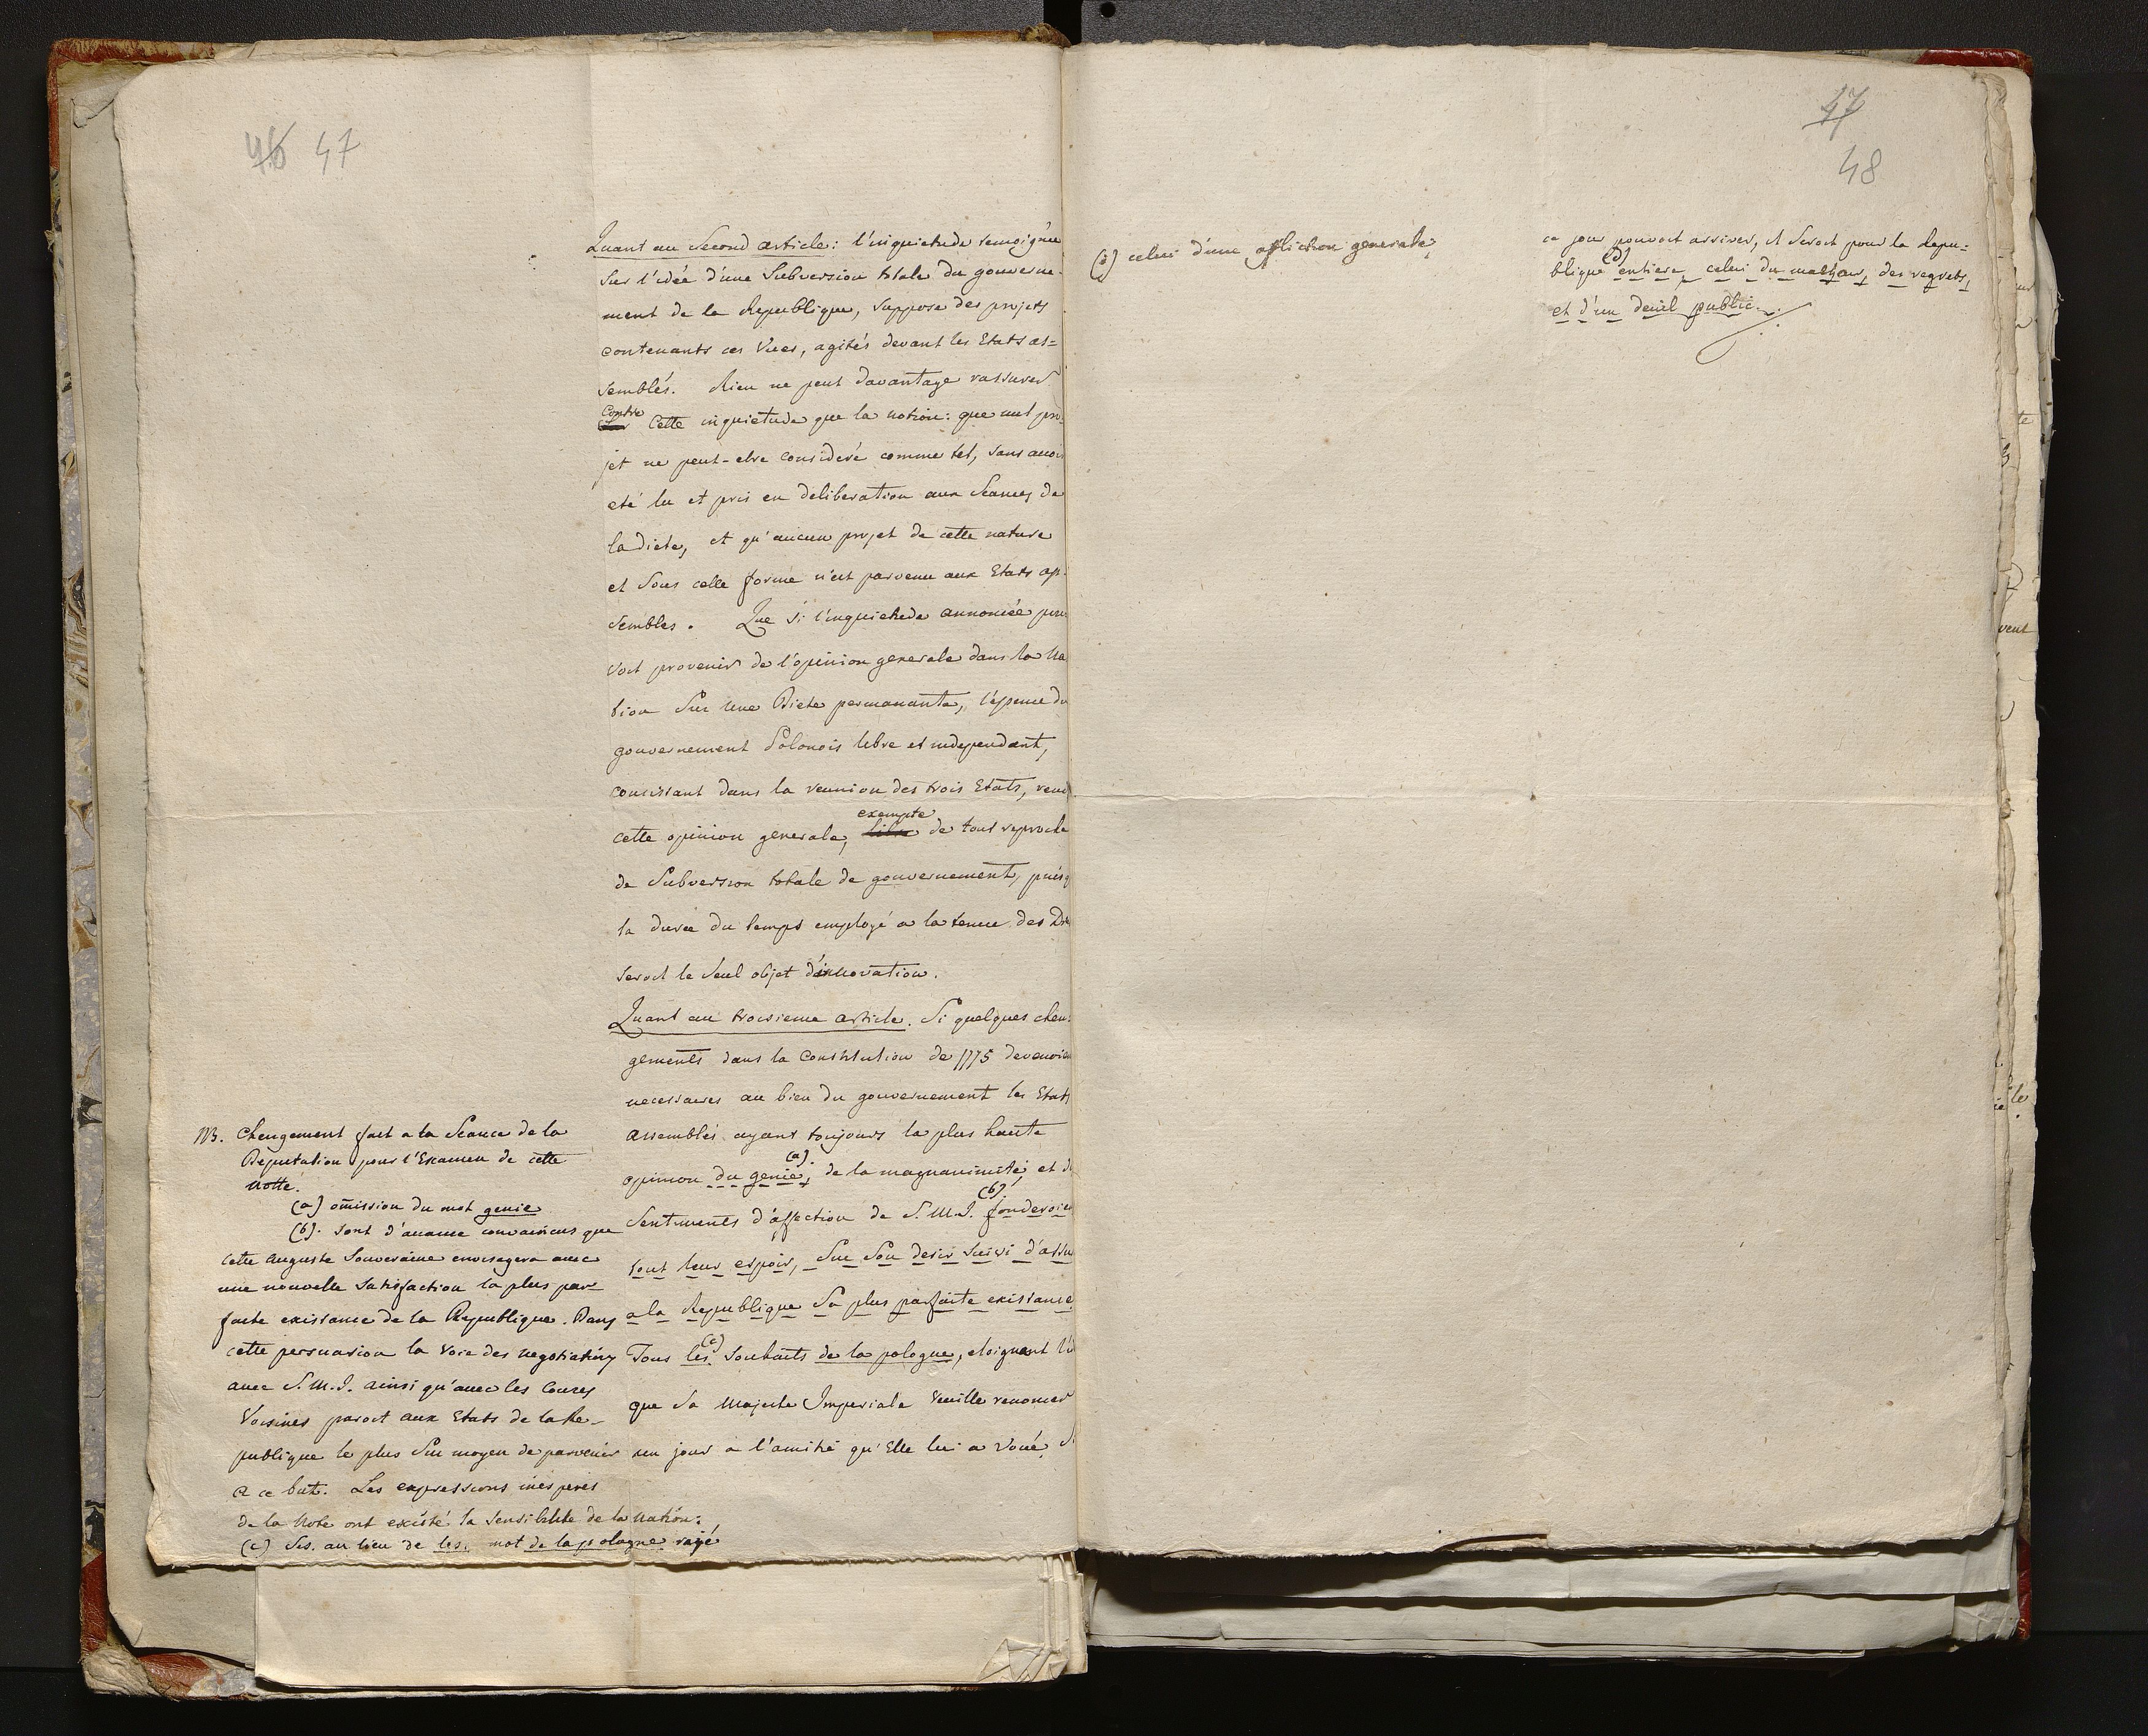 46 47
Quant au Second article: l'inquietude temoignée
sur l'idée d'une Subversion totale du gouverne-
ment de la Republique, suppose des projets
contenants ces Vues, agités devant les Etats as=
semblés. Rien ne peut davantage rassurer
contre
Cette inquietude que la notion: que nul pro-
jet ne peut-etre consideré comme tel, sans avoir
eté lu et pris en deliberation aux Seances de
la diete, et qu'aucun projet de cette nature
et Sous cette forme n'est parvenu aux Etats as-
sembles. Que si l'inquietude annoncée pou
voit provenir de l'opinion generale dans la Na
tion Sur une Diete permanante, l'essence du
gouvernement Polonois libre et independant,
concistant dans la reunion des trois Etats, rend
exempte
cette opinion generale, libre de tout reproche
de Subversion totale de gouvernement, puisq
la durée du temps employé a la tenue des Die
seroit le Seul objet d'innovation.
Quant au troisieme article. Si quelques chan-
gements dans la Constitution de 1775 devenoien
necessaires au bien du gouvernement les Etats
assemblés ayant toujours la plus haute
(a).
opinion du genie, de la magnanimité, et d
(b).
Sentiments d'affection de S.M.I. fonderoien
tout leur espoir, Sur Son desir Suivi d'assu
a la Republique Sa plus parfaite existance.
(c)
Tous les Souhaits de la pologne, eloignent l'i
que Sa Majeste Imperiale Veuille renoncer
un jour a l'amitié qu'Elle lui a Voué, S
NB. Changement fait a la Seance de la
Deputation pour l'Examen de cette
Notte.
(a) omission du mot genie
(b). sont d'avance convaincus que
cette auguste Souveraine envisagera avec
une nouvelle Satisfaction la plus par-
faite existance de la Republique. Dans
cette persuasion la Voie des negotiations
avec S.M.I. ainsi qu'avec les Cours
Voisines paroit aux Etats de la Re-
publique le plus Sur moyen de parvenir
a ce but. Les expressions inesperés
de la Note ont existé la sensibilité de la Nation.
(c) Ses. au lieu de les. mot de la pologne rayé
47
48
(d) celui d'une affliction generale,
ce jour pouvoit arriver, il seroit pour la Repu=
(d)
blique entiere, celui du malheur, des regrets,
et d'un deuil public.